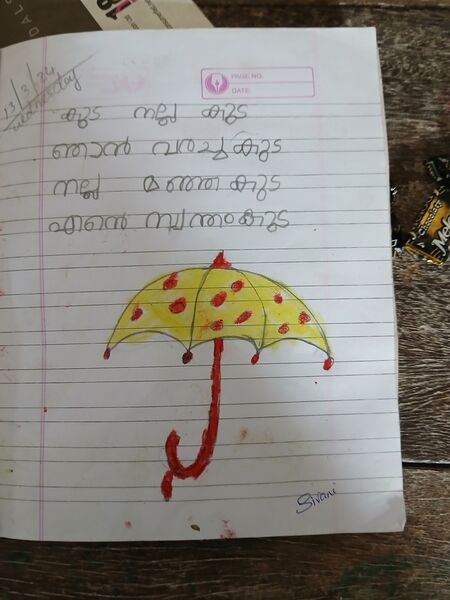 13/3/24
wednesday
PAGE NO.
DATE:
കുട നല്ല കുട
ഞാൻ വരച്ച കുട
നല്ല മഞ്ഞ കുട
എൻെ സ്വന്തം കുട
Sivani
Melo
chocolate